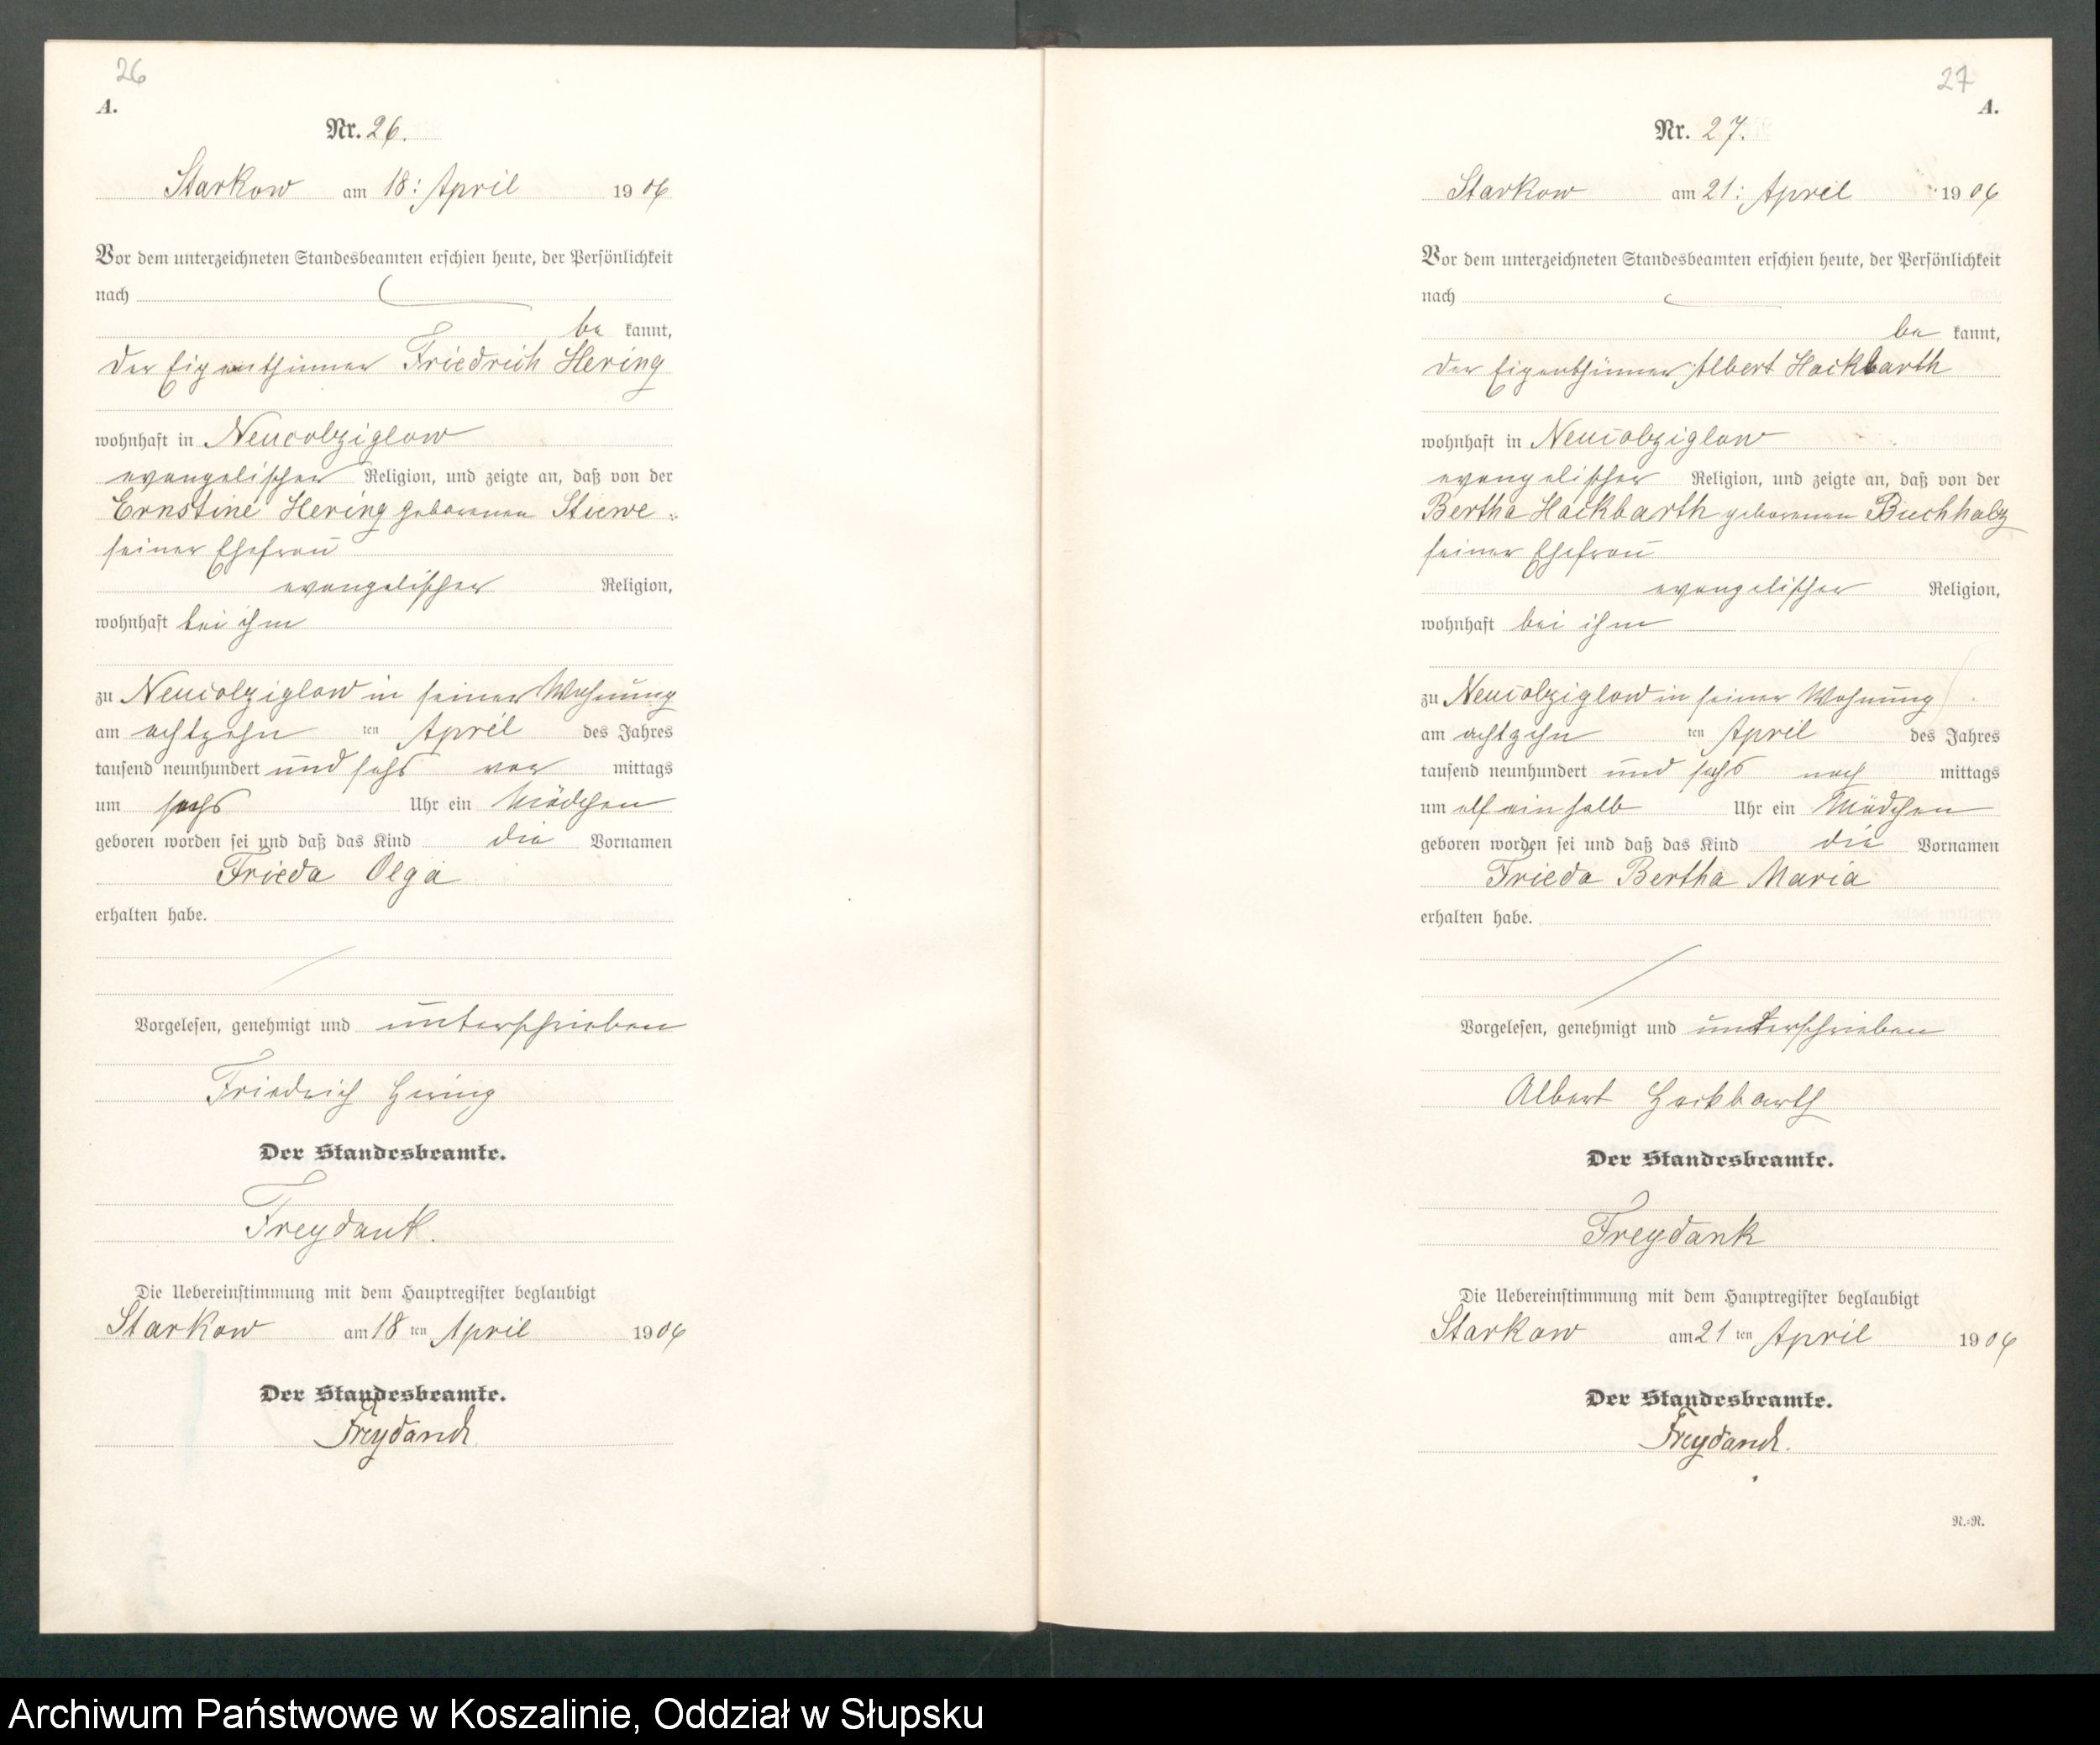 26
A.
Nr. 26.
Starkow am 18: April 1906
Vor dem unterzeichneten Standesbeamten erschien heute, der Persönlichkeit
nach
be kannt,
der Eigenthümer Friedrich Hering
wohnhaft in Neucolziglow
evangelischer Religion, und zeigte an, daß von der
Ernstine Hering geborenen Stiewe
seiner Ehefrau
evangelischer Religion,
wohnhaft bei ihm
zu Neucolziglow in seiner Wohnung
am achtzehn ten April des Jahres
tausend neunhundert und sechs vor mittags
um sechs Uhr ein Mädchen
geboren worden sei und daß das Kind die Vornamen
Frieda Olga
erhalten habe.
Vorgelesen, genehmigt und unterschrieben
Friedrich Hering
Der Standesbeamte.
Freydank.
Die Uebereinstimmung mit dem Hauptregister beglaubigt
Starkow am 18 ten April 1906
Der Standesbeamte.
Freydank
27
A.
Nr. 27.
Starkow am 21: April 1906
Vor dem unterzeichneten Standesbeamten erschien heute, der Persönlichkeit
nach
be kannt,
der Eigenthümer Albert Hackbarth
wohnhaft in Neucolziglow
evangelischer Religion, und zeigte an, daß von der
Bertha Hackbarth geborenen Buchholz
seiner Ehefrau
evangelischer Religion,
wohnhaft bei ihm
zu Neucolziglow in seiner Wohnung
am achtzehn ten April des Jahres
tausend neunhundert und sechs nach mittags
um elf ein halb Uhr ein Mädchen
geboren worden sei und daß das Kind die Vornamen
Frieda Bertha Maria
erhalten habe.
Vorgelesen, genehmigt und unterschrieben
Albert Hackbarth
Der Standesbeamte.
Freydank
Die Uebereinstimmung mit dem Hauptregister beglaubigt
Starkow am 21 ten April 1906
Der Standesbeamte.
Freydank.
R.=R.
Archiwum Państwowe w Koszalinie, Oddział w Słupsku